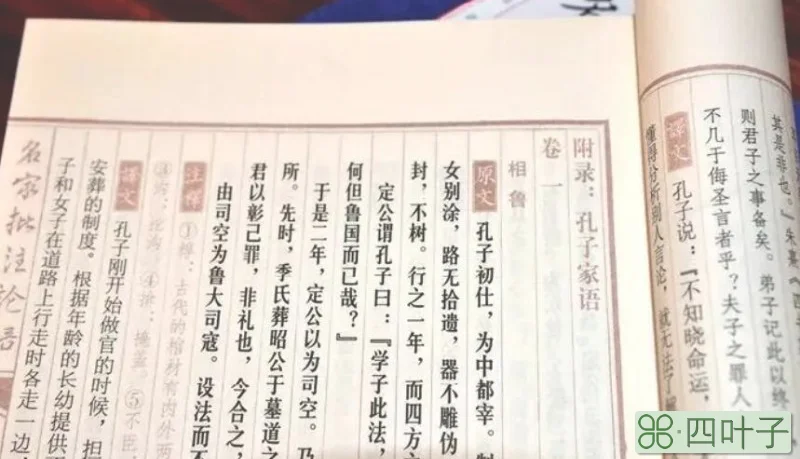 其是非也。”朱熹《四
则君子之事备矣。弟子记此以终
不几于侮圣言者乎？夫子之罪人
译文
孔子说：『不知晓命运，
懂得分析别人言论，就无法了解
附录：孔子家语
卷一
相鲁
原文
孔子初仕，为中都宰。制
女别涂，路无拾遗，器不雕伪
封，不树。行之一年，而四方
定公谓孔子曰：『学子此法，
何但鲁国而已哉？』
于是二年，定公以为司空。乃
所。先时，季氏葬昭公于墓道之
君以彰己罪，非礼也，今合之，
由司空为鲁大司寇。设法而不
注释
古代的棺材有内外两
④
掩盖。⑤不臣
译文
孔子刚开始做官的时候，担
安葬的制度。根据年龄的长幼提供不
子和女子在道路上行走时各走一边
名家批注论语
四叶子